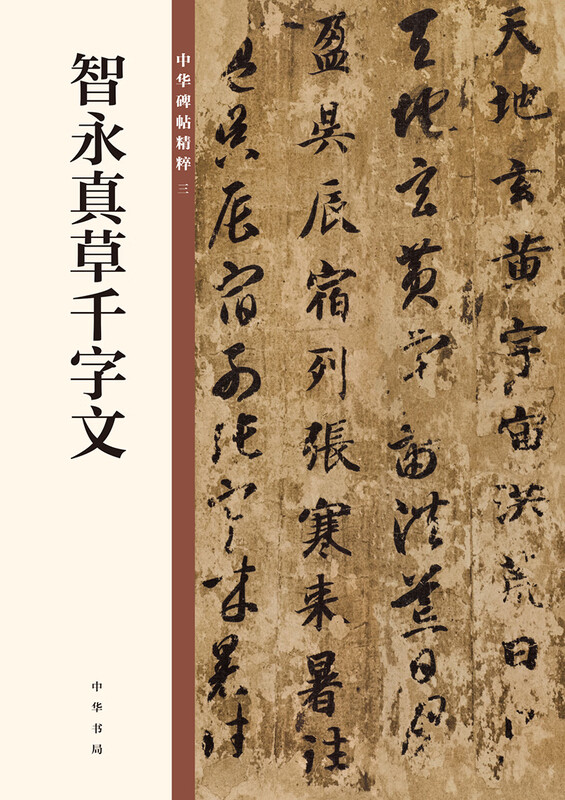 智永真草千字文
中华书局
中华碑帖精粹 三
天地玄黄宇宙洪荒日月
天地玄黄宇宙洪荒日月
盈昃辰宿列張寒来暑往
盈昃辰宿列張寒来暑往